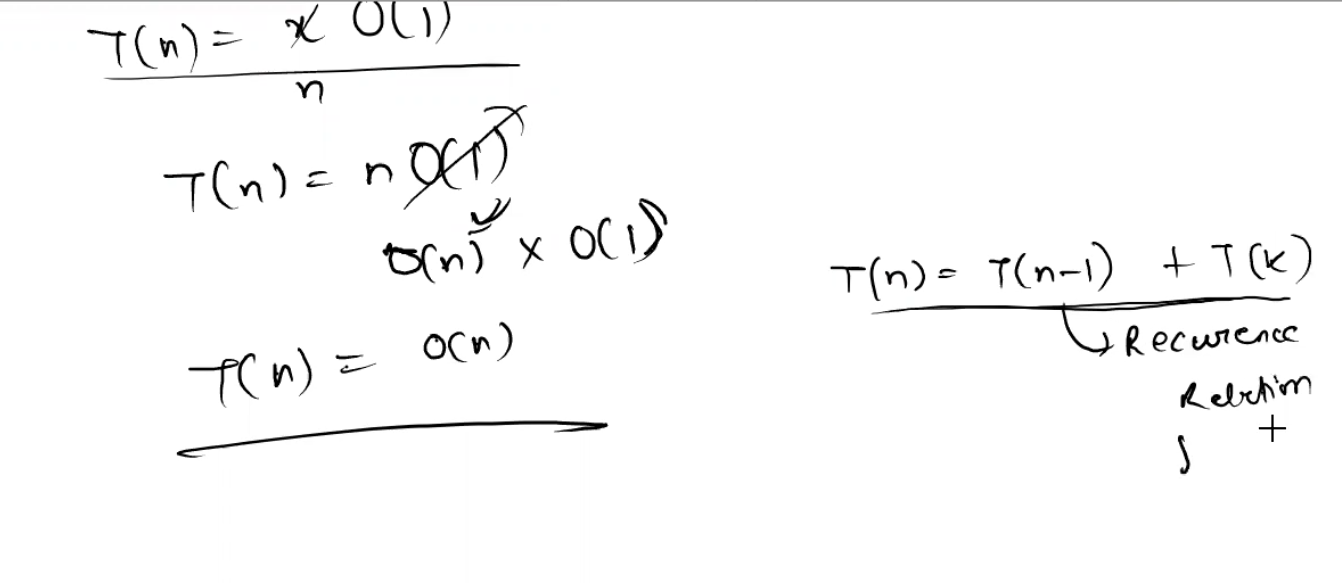 T(n) = x O(1)
n
T(n) = n O(1)
O(n) x O(1)
T(n) = O(n)
T(n) = T(n-1) + T(k)
Recurrence
Relation